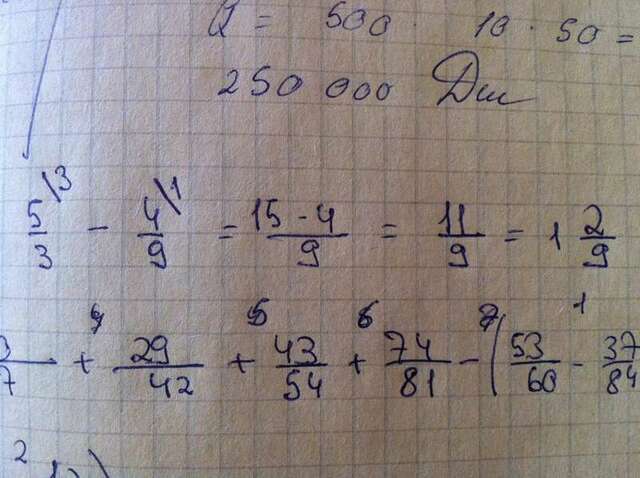 Q = 500 · 10 · 50 =
250 000 Дж
5/3 \3 - 4/9 \1 = 15-4/9 = 11/9 = 1 2/9
3/7 + 29/42 + 43/54 + 74/81 - (53/60 - 37/84
2